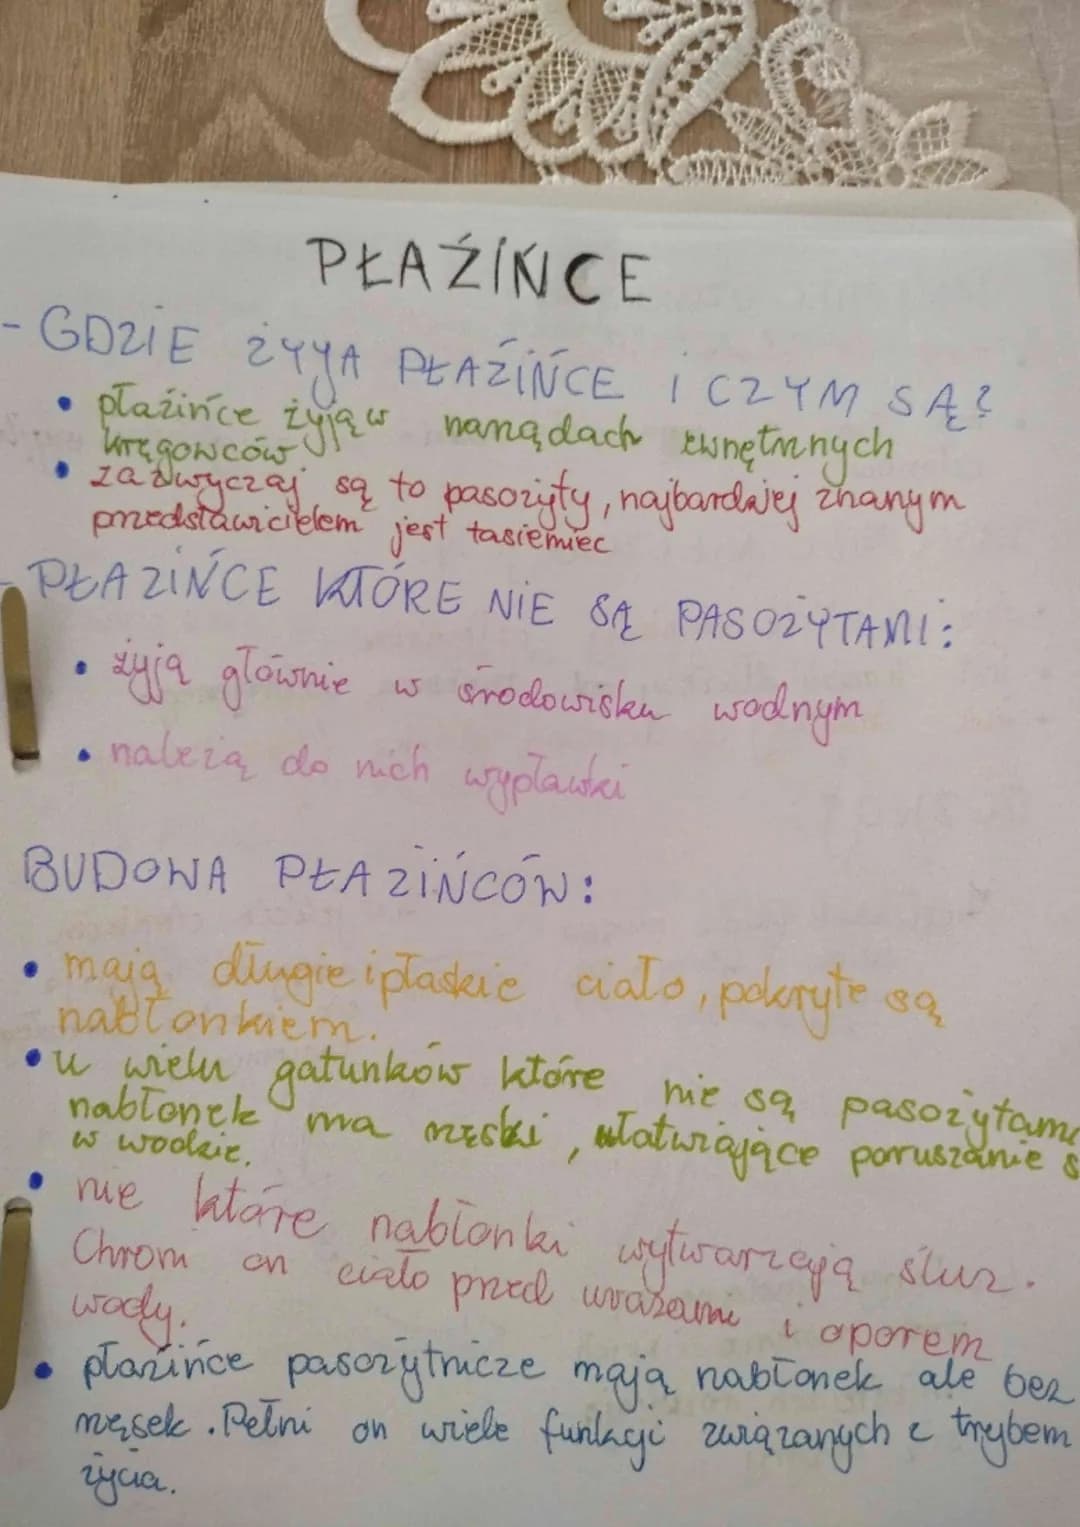 PŁAŹIŃCE
- GDZIE ŻYYA PŁAŹIŃCE I CZYM SĄ?
• płaźińce żyją w narządach wnętrznych
kręgowców
• zazwyczaj są to pasożyty, najbardziej znanym
przedstawicielem jest tasiemiec
- PŁAZIŃCE KTÓRE NIE SĄ PASOŻYTAMI:
• żyją głównie w środowisku wodnym
• należą do nich wypławki
BUDOWA PŁAZIŃCÓW:
• mają długie i płaskie ciało, pokryte są
nabłonkiem.
• u wielu gatunków które nie są pasożytami
nabłonek ma rzęski, ułatwiające poruszanie s
w wodzie.
• nie które nabłonki wytwarzają śluz.
Chroni on ciało przed urazami i oporem
wody.
• płazińce pasożytnicze mają nabłonek ale bez
rzęsek. Pełni on wiele funkcji związanych z trybem
życia.